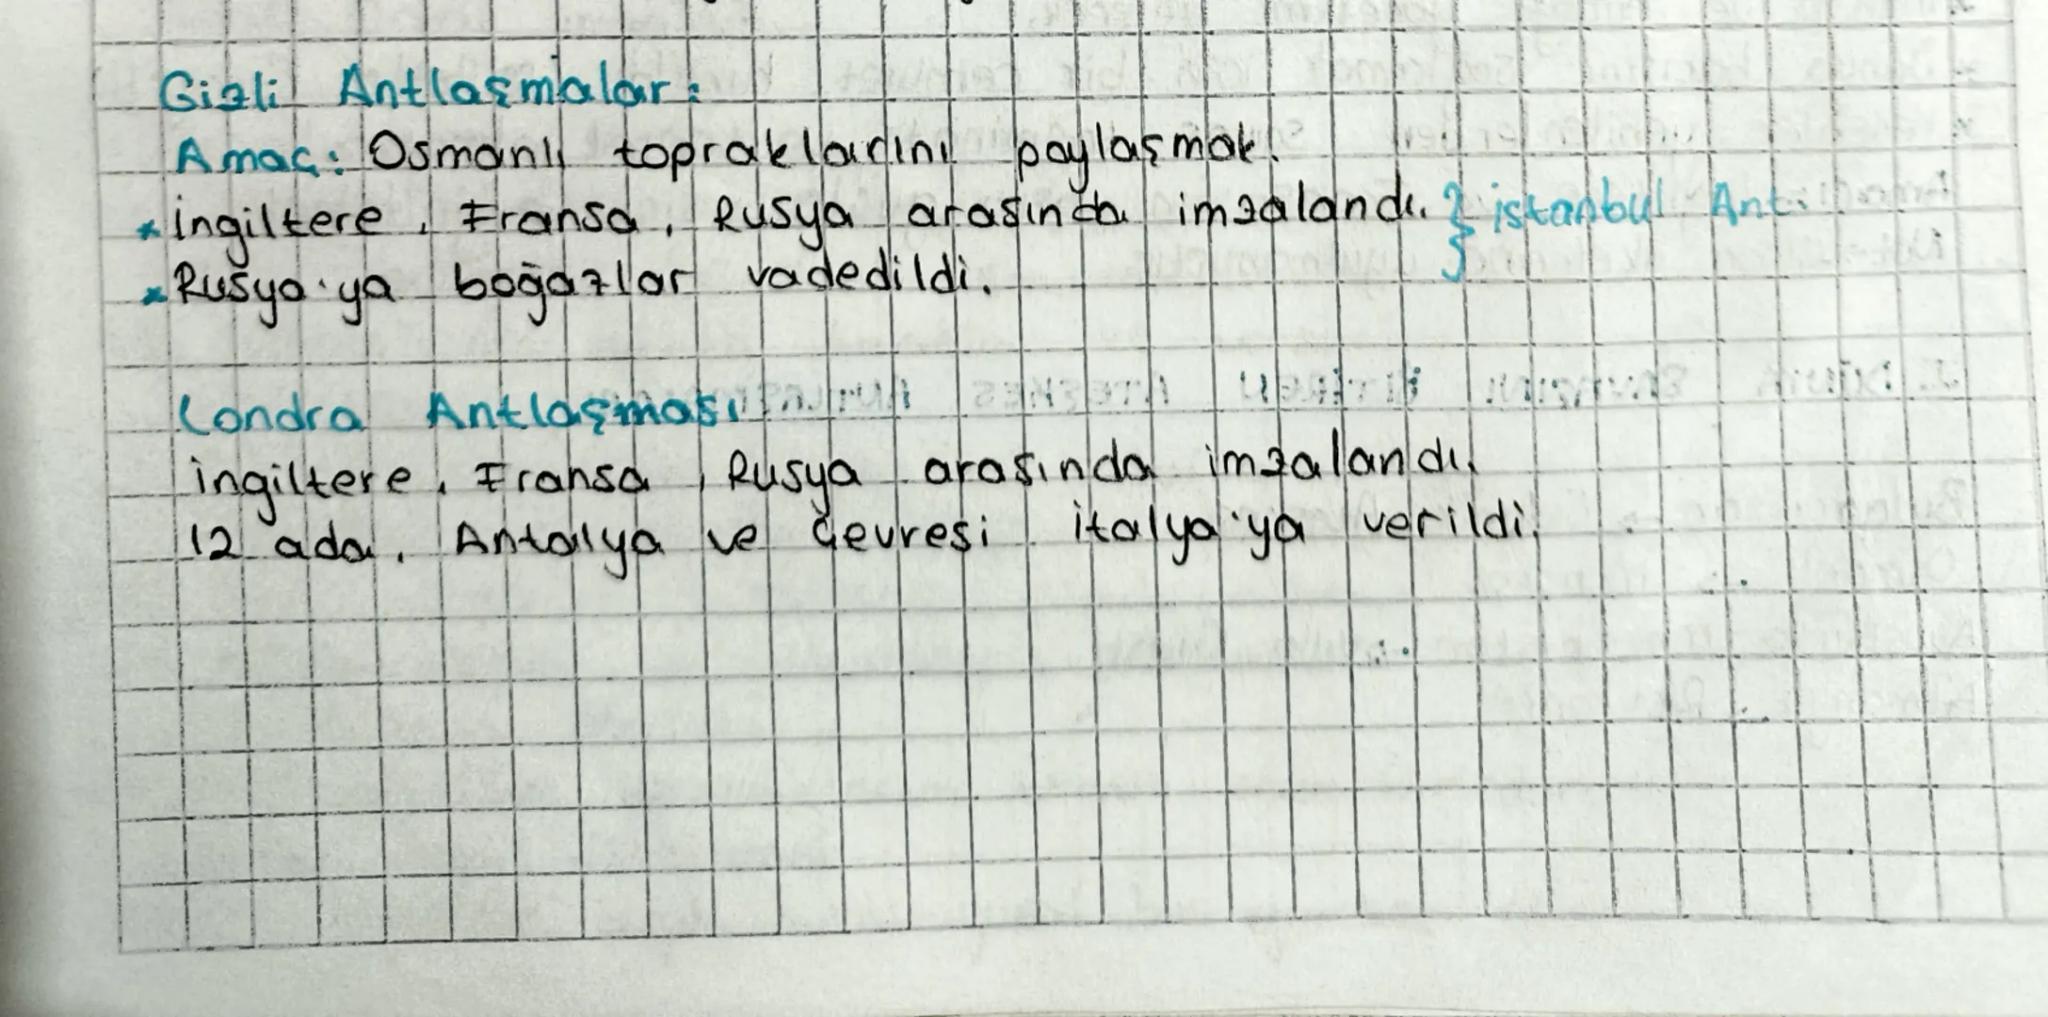 Gizli Antlaşmalar:
Amaç: Osmanlı topraklarını paylaşmak.
* ingiltere, Fransa, Rusya arasında imzalandı. } istanbul Ant.
* Rusya'ya boğazlar vadedildi.
Londra Antlaşması
ingiltere, Fransa, Rusya arasında imzalandı.
12 ada, Antalya ve çevresi italya'ya verildi.